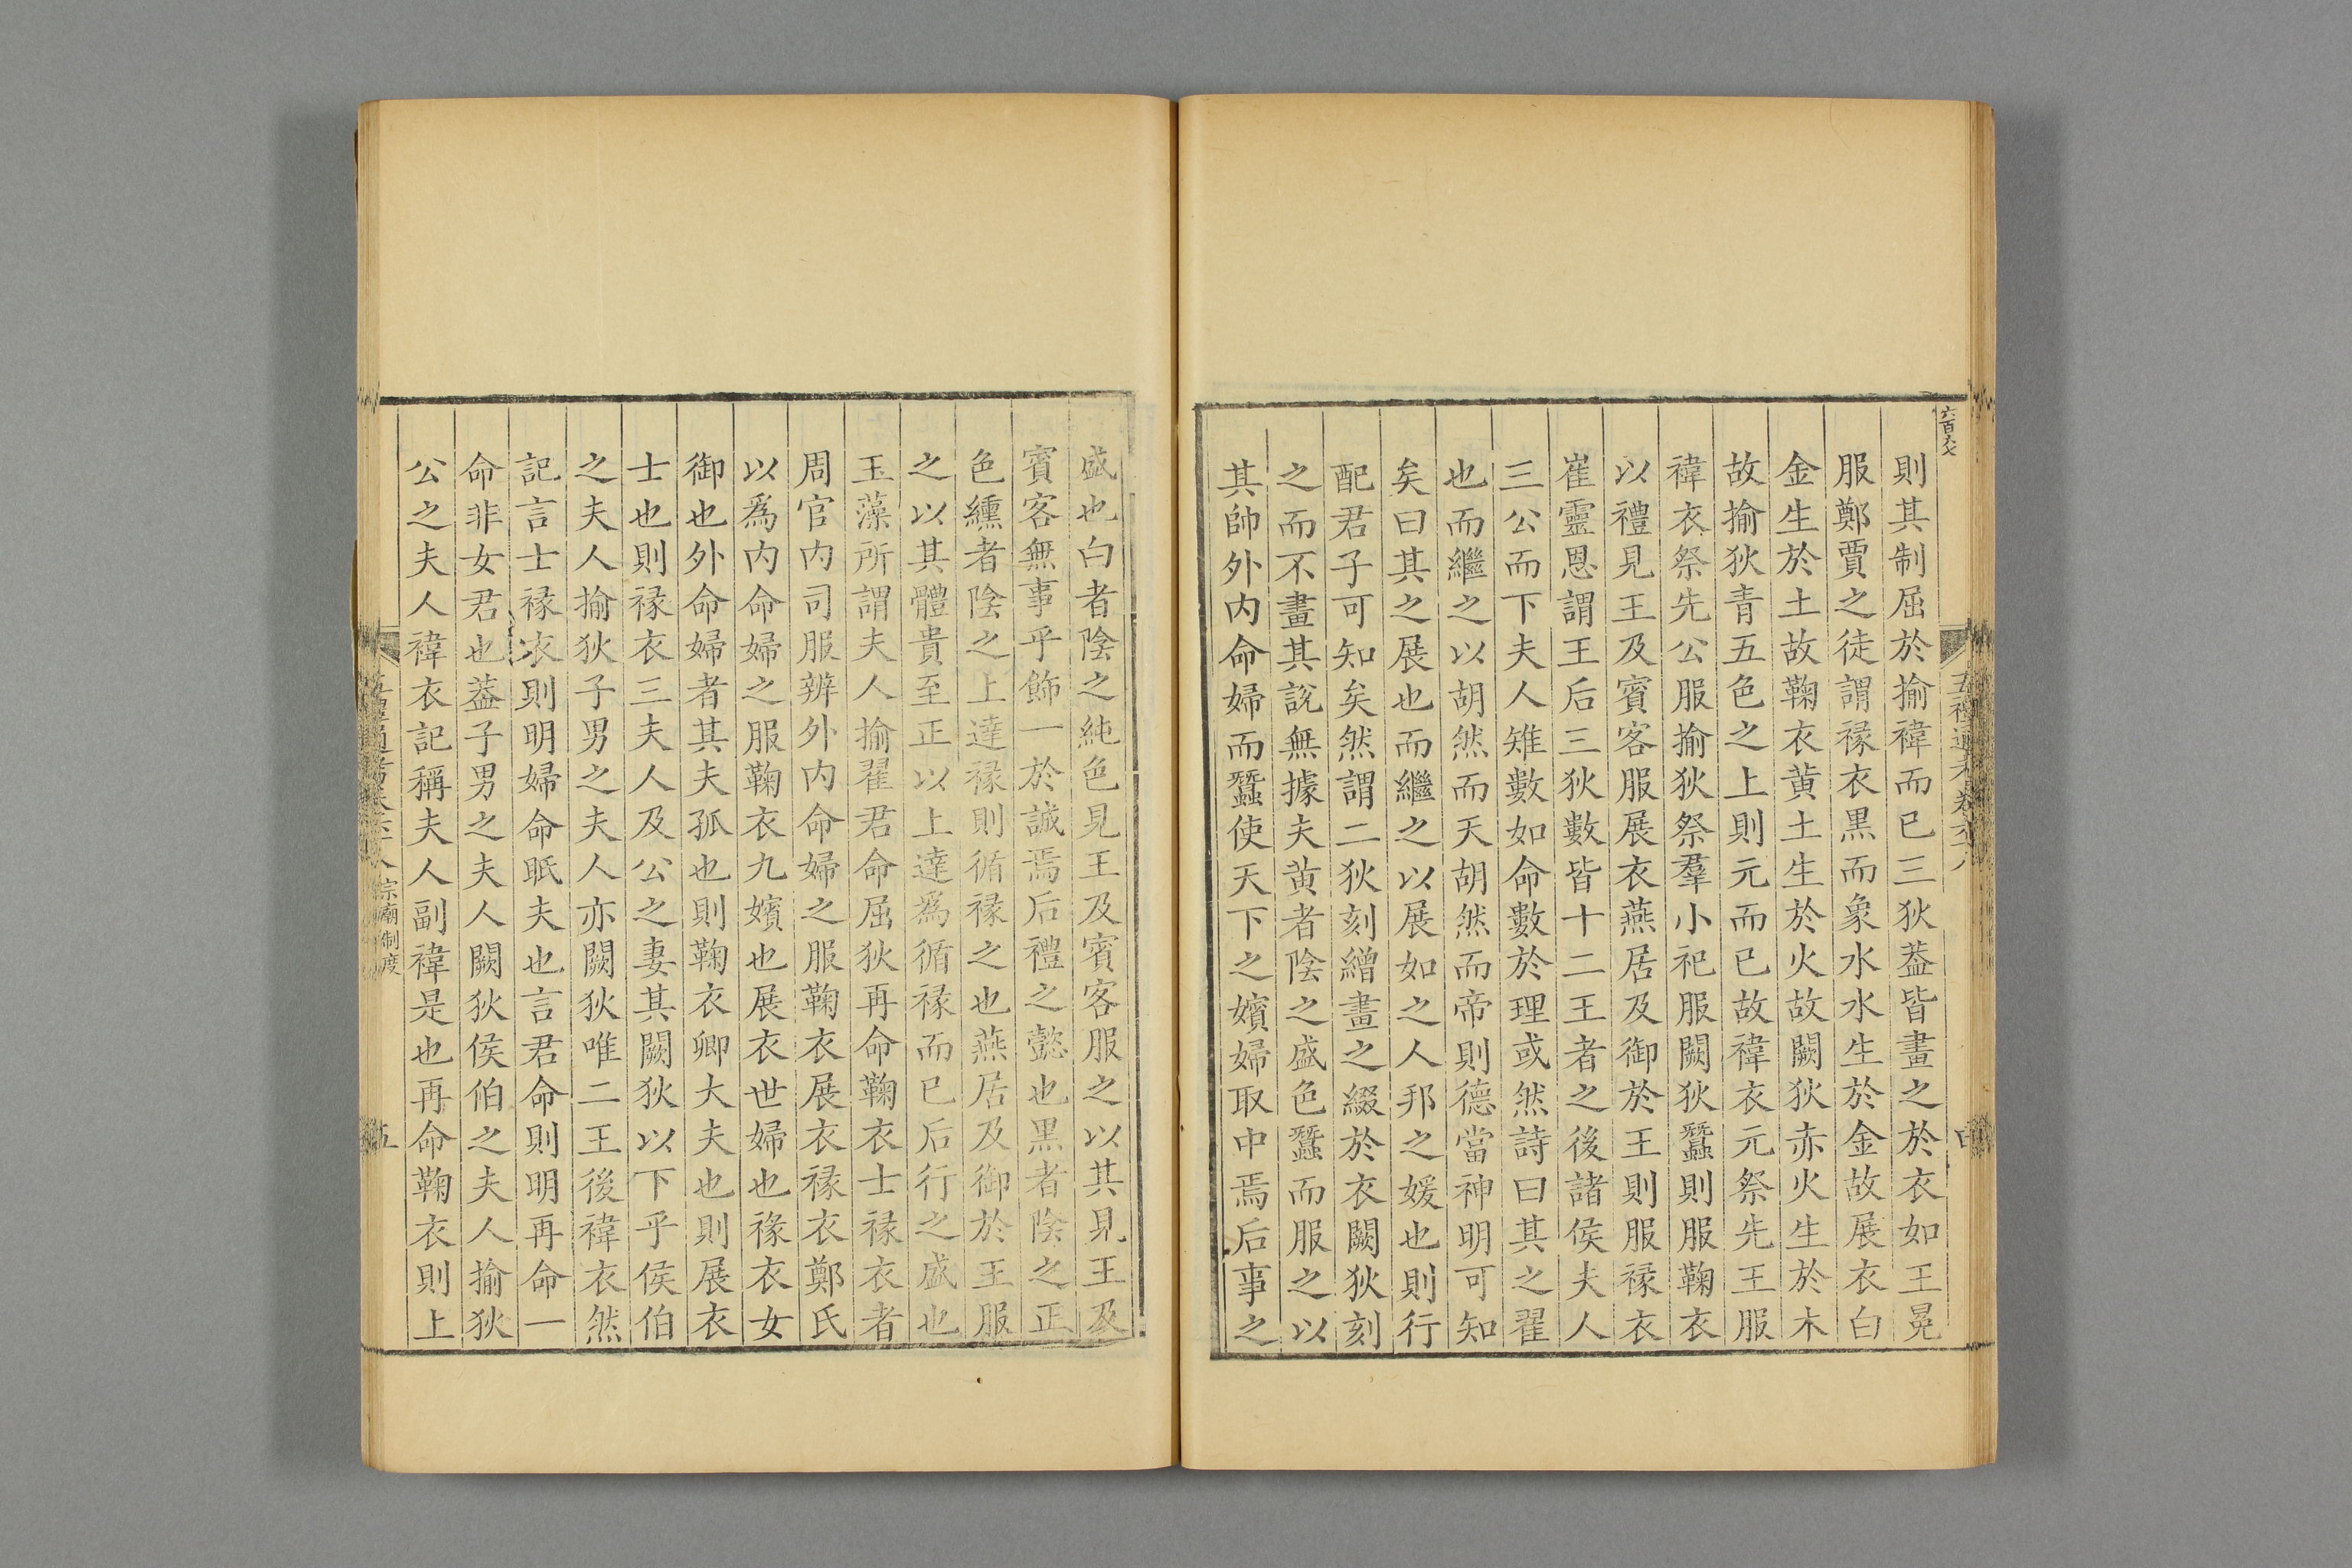 則其制屈於揄褘而已三狄葢皆畫之於衣如王冕
服鄭賈之徒謂褖衣黒而象水水生於金故展衣白
金生於土故鞠衣黄土生於火故闕狄赤火生於木
故揄狄青五色之上則元而已故褘衣元祭先王服
褘衣祭先公服揄狄祭羣小祀服闕狄蠶則服鞠衣
以禮見王及賓客服展衣燕居及御於王則服褖衣
崔靈恩謂王后三狄數皆十二王者之後諸侯夫人
三公而下夫人雉數如命數於理或然詩曰其之翟
也而繼之以胡然而天胡然而帝則德當神明可知
矣曰其之展也而繼之以展如之人邦之媛也則行
配君子可知矣然謂二狄刻繒畫之綴於衣闕狄刻
之而不畫其說無據夫黄者陰之盛色蠶而服之以
其帥外内命婦而蠶使天下之嬪婦取中焉后事之
盛也白者陰之純色見王及賓客服之以其見王及
賓客無事乎飾一於誠焉后禮之懿也黒者陰之正
色纁者陰之上達褖則循褖之也燕居及御於王服
之以其體貴至正以上達為循褖而已后行之盛也
玉藻所謂夫人揄翟君命屈狄再命鞠衣士褖衣者
周官内司服辨外内命婦之服鞠衣展衣褖衣鄭氏
以爲内命婦之服鞠衣九嬪也展衣世婦也褖衣女
御也外命婦者其夫孤也則鞠衣卿大夫也則展衣
士也則褖衣三夫人及公之妻其闕狄以下乎侯伯
之夫人揄狄子男之夫人亦闕狄唯二王後褘衣然
記言士褖衣則明婦命眂夫也言君命則明再命一
命非女君也葢子男之夫人闕狄侯伯之夫人揄狄
公之夫人褘衣記稱夫人副褘是也再命鞠衣則上
宗廟制度
五